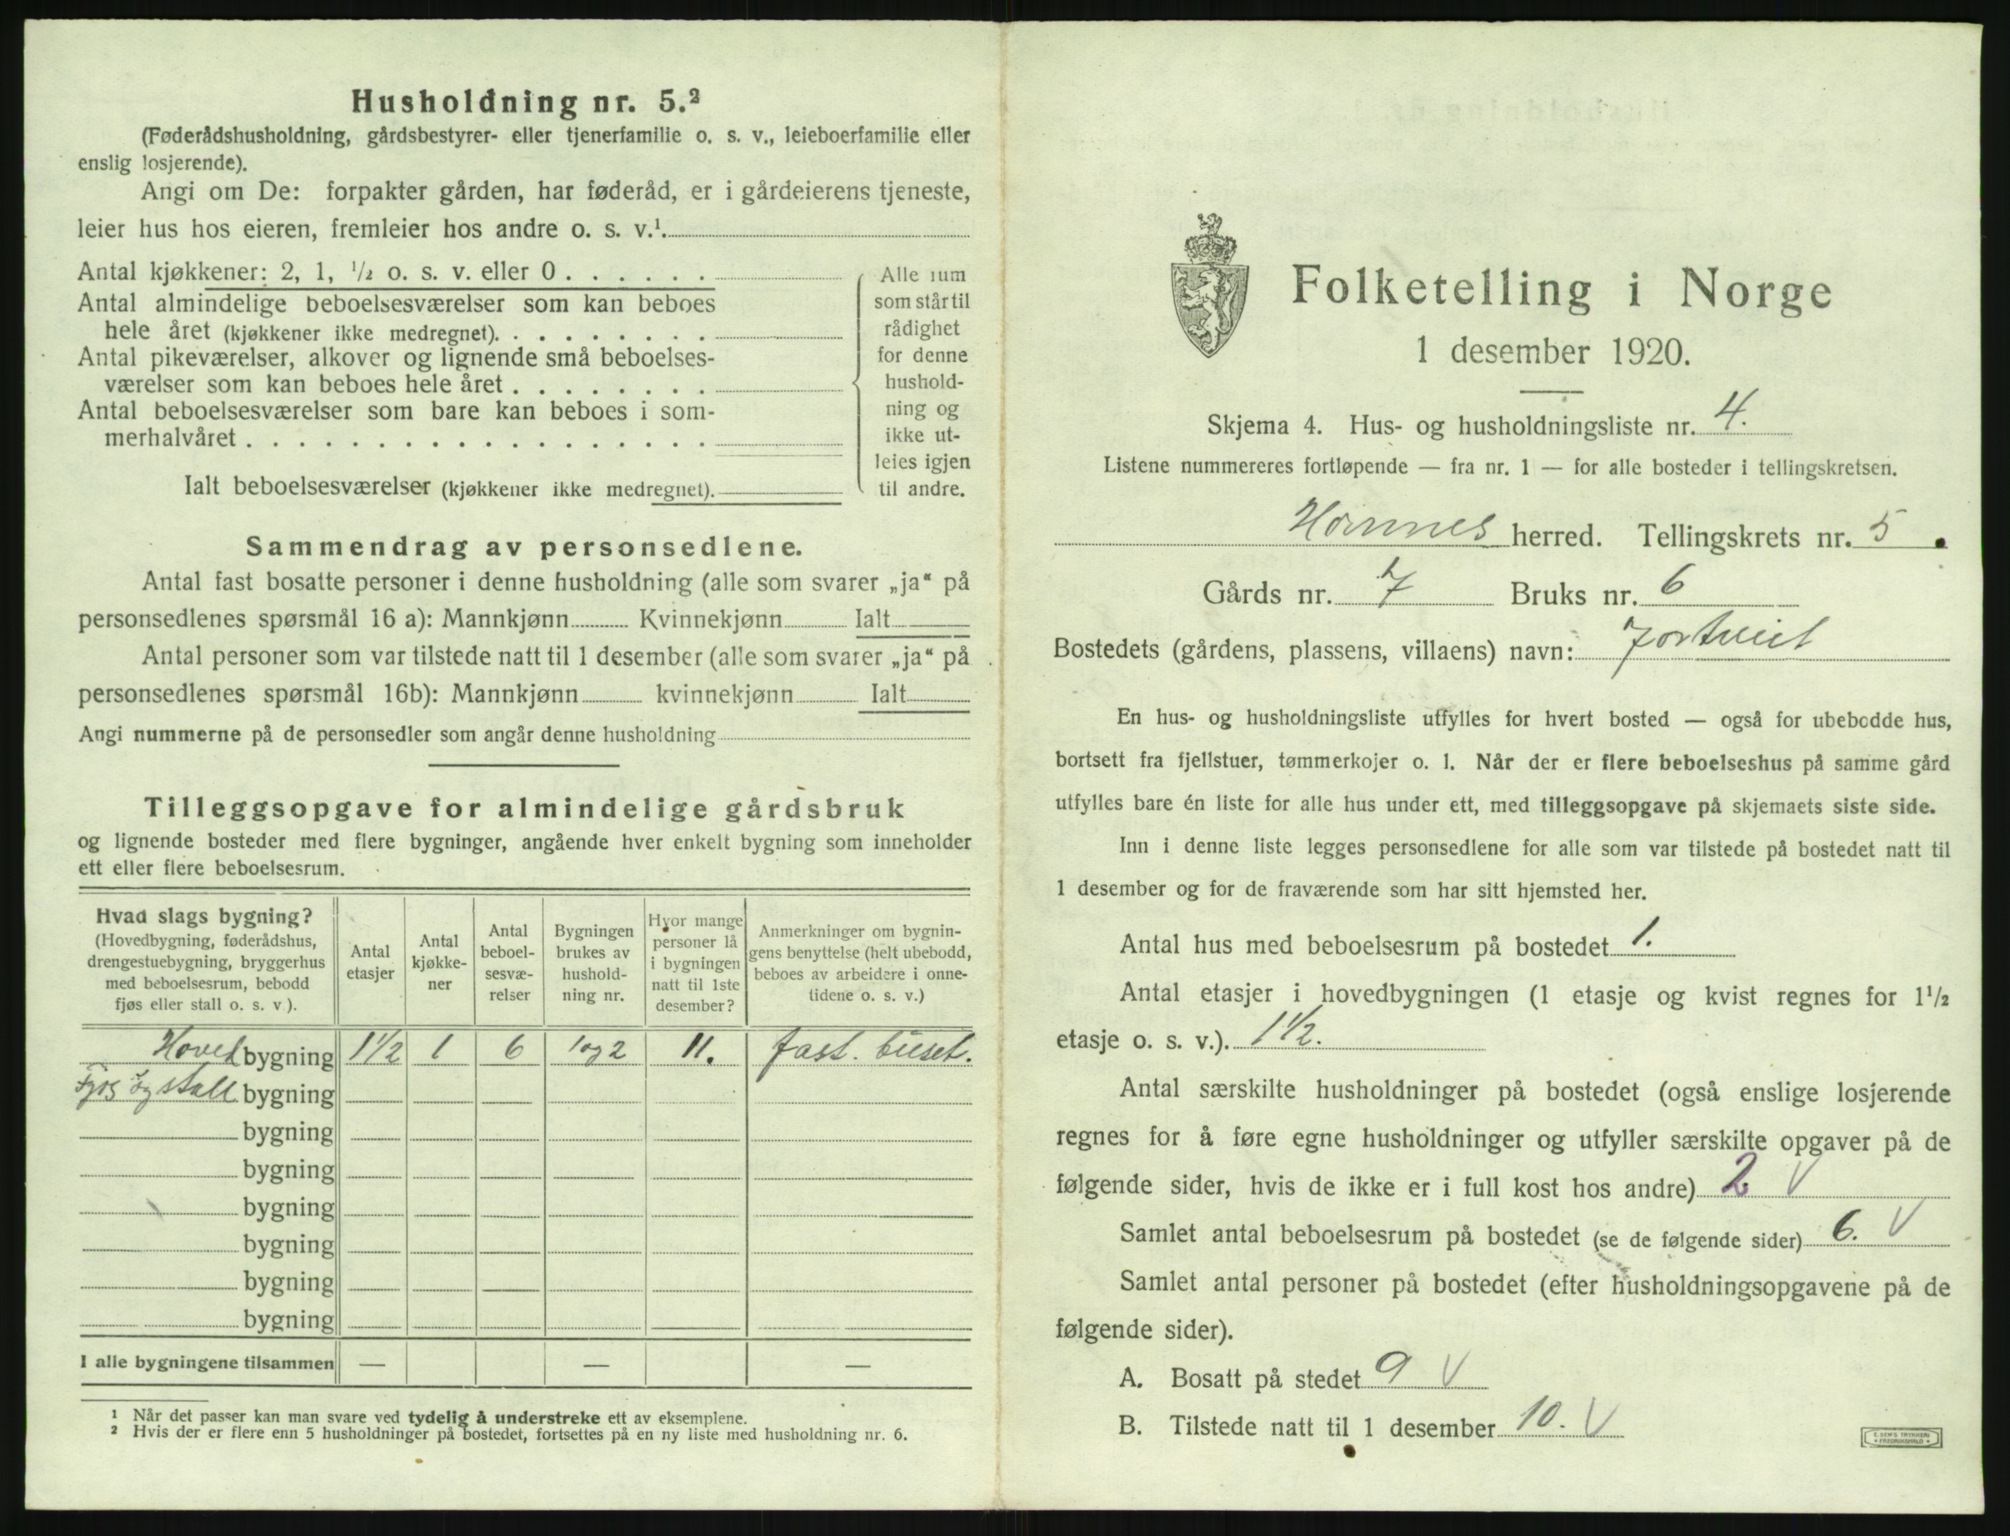 Husholdning nr. 5.²
(Føderådshusholdning, gårdsbestyrer- eller tjenerfamilie o. s. v., leieboerfamilie eller
enslig losjerende).
Angi om De: forpakter gården, har føderåd, er i gårdeierens tjeneste,
leier hus hos eieren, fremleier hos andre o. s. v.¹.
Antal kjøkkener: 2, 1, ½ o. s. v. eller 0 . . . . . .
Antal almindelige beboelsesværelser som kan beboes
hele året (kjøkkener ikke medregnet). . . . . . . . .
Antal pikeværelser, alkover og lignende små beboelses-
værelser som kan beboes hele året . . . . . . . .
Antal beboelsesværelser som bare kan beboes i som-
merhalvåret . . . . . . . . . . . . . . . . . .
Ialt beboelsesværelser (kjøkkener ikke medregnet).
Alle rum
som står til
rådighet
for denne
hushold-
ning og
ikke ut-
leies igjen
til andre.
Sammendrag av personsedlene.
Antal fast bosatte personer i denne husholdning (alle som svarer „ja“ på
personsedlenes spørsmål 16 a): Mannkjønn Kvinnekjønn Ialt
Antal personer som var tilstede natt til 1 desember (alle som svarer „ja“ på
personsedlenes spørsmål 16b): Mannkjønn kvinnekjønn Ialt
Angi nummerne på de personsedler som angår denne husholdning
Tilleggsopgave for almindelige gårdsbruk
og lignende bosteder med flere bygninger, angående hver enkelt bygning som inneholder
ett eller flere beboelsesrum.
Hvad slags bygning?
(Hovedbygning, føderådshus,
drengestuebygning, bryggerhus
med beboelsesrum, bebodd
fjøs eller stall o. s. v ).
Antal
etasjer
Antal
kjøkke-
ner
Antal
beboel-
sesvæ-
relser
Bygningen
brukes av
hushold-
ning nr.
Hvor mange
personer lå
i bygningen
natt til 1ste
desember?
Anmerkninger om bygnin-
gens benyttelse (helt ubebodd,
beboes av arbeidere i onne-
tidene o. s. v.)
Hoved bygning 1½ 1 6 1 og 2 11. fast.
Fjøs og stall bygning
bygning
bygning
bygning
bygning
bygning
bygning
I alle bygningene tilsammen — — —
¹ Når det passer kan man svare ved tydelig å understreke ett av eksemplene.
² Hvis der er flere enn 5 husholdninger på bostedet, fortsettes på en ny liste med husholdning nr. 6.
Folketelling i Norge
1 desember 1920.
Skjema 4. Hus- og husholdningsliste nr. 4.
Listene nummereres fortløpende — fra nr. 1 — for alle bosteder i tellingskretsen.
Hornnes herred. Tellingskrets nr. 5.
Gårds nr. 7 Bruks nr. 6
Bostedets (gårdens, plassens, villaens) navn: Fortveit
En hus- og husholdningsliste utfylles for hvert bosted — også for ubebodde hus,
bortsett fra fjellstuer, tømmerkojer o. l. Når der er flere beboelseshus på samme gård
utfylles bare én liste for alle hus under ett, med tilleggsopgave på skjemaets siste side.
Inn i denne liste legges personsedlene for alle som var tilstede på bostedet natt til
1 desember og for de fraværende som har sitt hjemsted her.
Antal hus med beboelsesrum på bostedet 1.
Antal etasjer i hovedbygningen (1 etasje og kvist regnes for 1½
etasje o. s. v.). 1½.
Antal særskilte husholdninger på bostedet (også enslige losjerende
regnes for å føre egne husholdninger og utfyller særskilte opgaver på de
følgende sider, hvis de ikke er i full kost hos andre) 2 V
Samlet antal beboelsesrum på bostedet (se de følgende sider) 6. V
Samlet antal personer på bostedet (efter husholdningsopgavene på de
følgende sider).
A. Bosatt på stedet 9 V
B. Tilstede natt til 1 desember 10. V